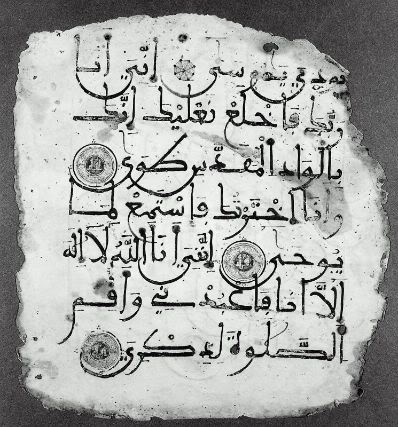 نودي يموسى إني أنا
ربك فاخلع نعليك إنك
بالواد المقدس طوى
وأنا اخترتك فاستمع لما
يوحى إنني أنا الله لا إله
إلا أنا فاعبدني وأقم
الصلوة لذكري